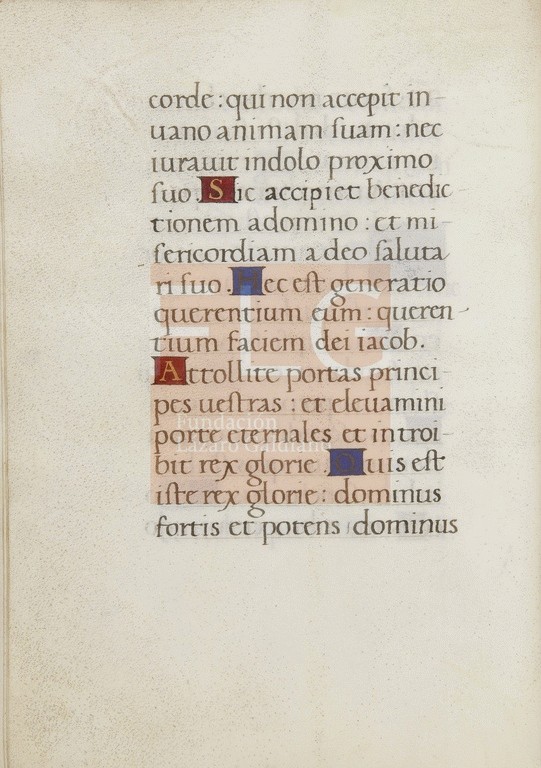 corde : qui non accepit in-
uano animam suam : nec
iurauit indolo proximo
suo . Sic accipiet benedic-
tionem adomino : et mi-
sericordiam a deo saluta
ri suo . Hec est generatio
querentium eum : queren-
tium faciem dei iacob .
Attollite portas princi-
pes uestras : et eleuamini
porte eternales et introi-
bit rex glorie . Quis est
iste rex glorie : dominus
fortis et potens dominus
FLG
Fundación
Lázaro Galdiano